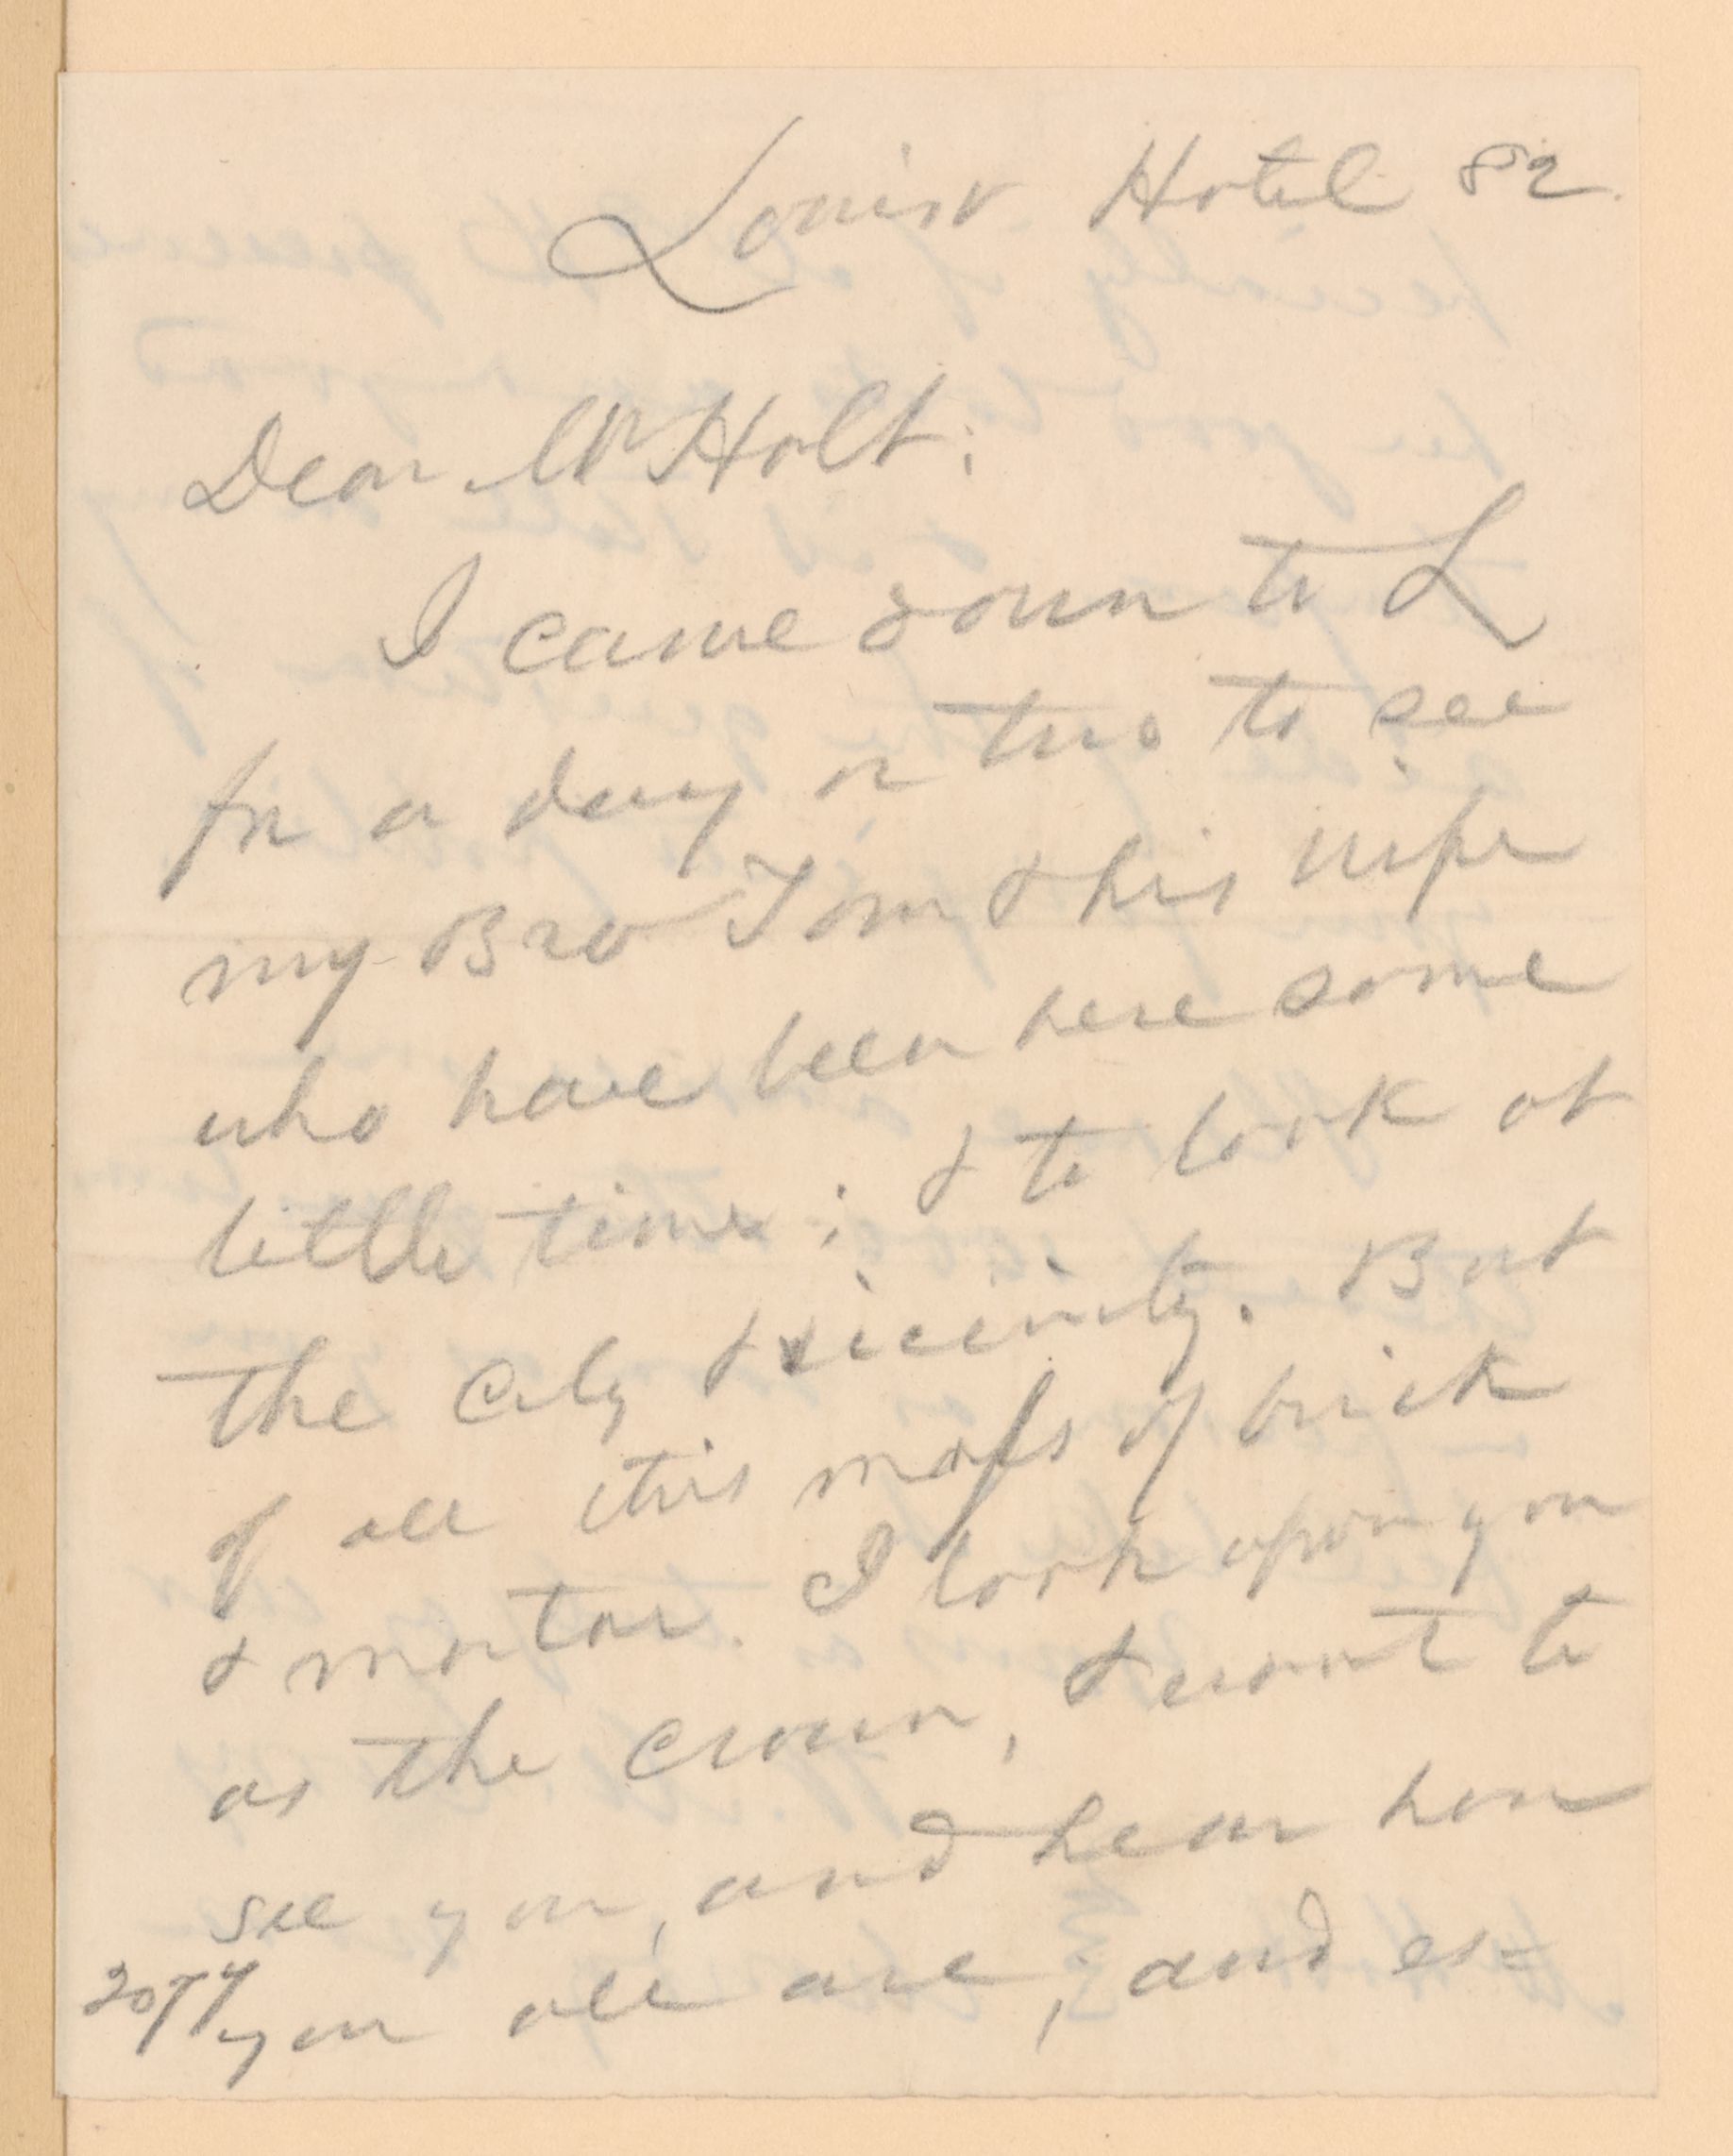 Louisv Hotel 82
Dear Mr Holt:
I came down to L
for a day or two to see
my Bro Tom & his wife
who have been here some
little time; & to look at
the City & vicinity. But
of all this mass of brick
& mortar. I look upon you
as the crown, & want to
see you, and hear how
you all are, and es-
2077